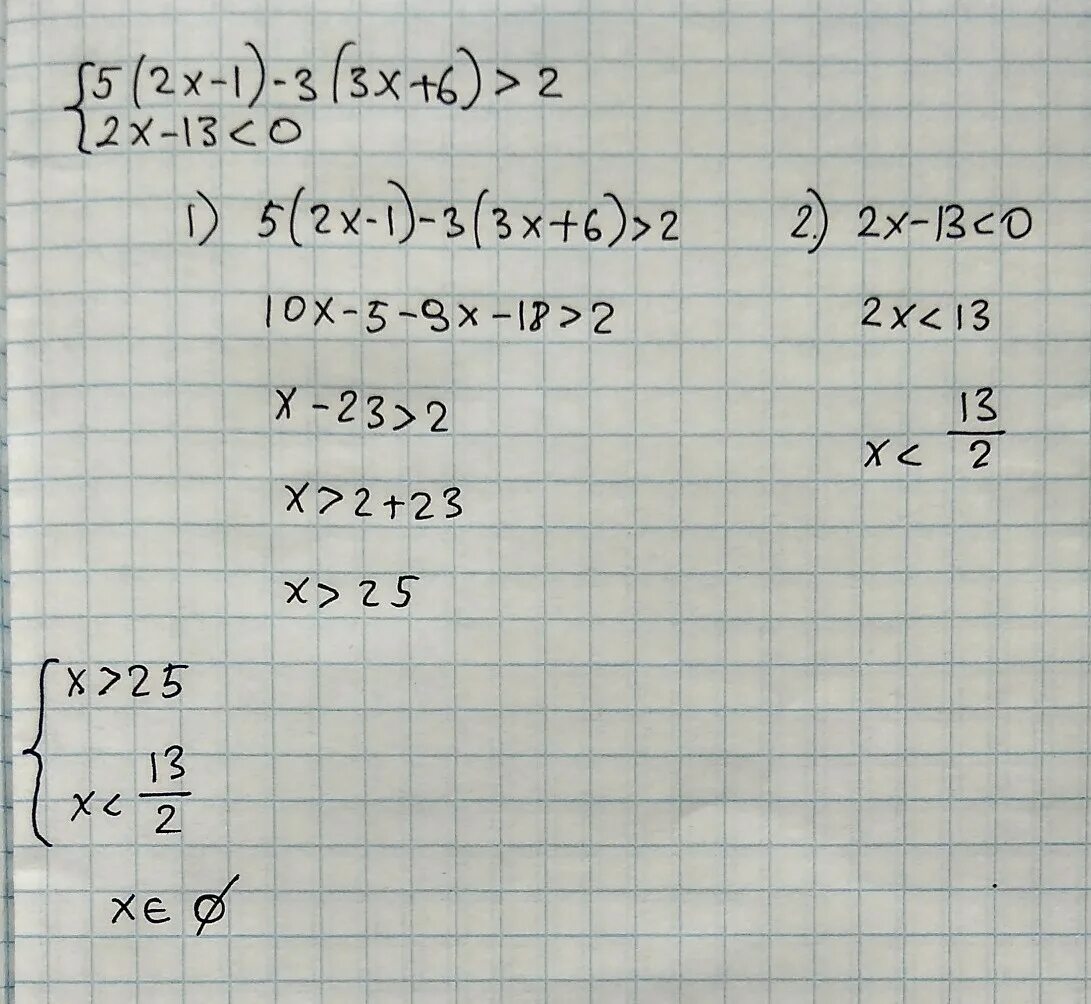 {5(2x-1)-3(3x+6)>2
{2x-13<0
1) 5(2x-1)-3(3x+6)>2
10x-5-9x-18>2
x-23>2
x>2+23
x>25
2.) 2x-13<0
2x<13
x< 13/2
{x>25
{x< 13/2
x∈ ∅